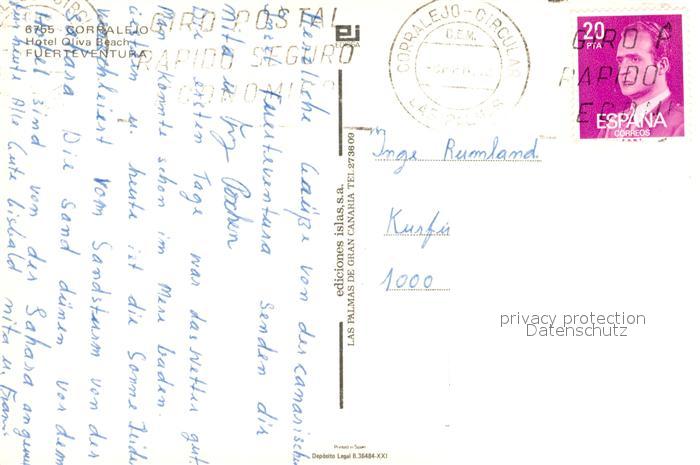 6755 - CORRALEJO
Hotel Oliva Beach
FUERTEVENTURA
GIRO POSTAL
RAPIDO SEGURO
ECONOMICO
CORRALEJO-CIRCULAR
LAS PALMAS
20
PTA
ESPAÑA
CORREOS
F.N.M.T.
GIRO P
RAPIDO
Herzliche Grüße von der canarischen
Insel Fuerteventura senden dir
Nita u. Bochen
Die ersten Tage war das Wetter gut.
Man konnte schon im Meer baden.
u. heute ist die Sonne leider
verschleiert vom Sandsturm von der
Die Sand dünen vor dem
Hotel sind von der Sahara angeweht
Alle Gute Nita u. Franz
ediciones islas, s.a.
LAS PALMAS DE GRAN CANARIA TEL.273609
Inge Rumland
Kurfü
1000
privacy protection
Datenschutz
Printed in Spain
Depósito Legal B.36484-XXI